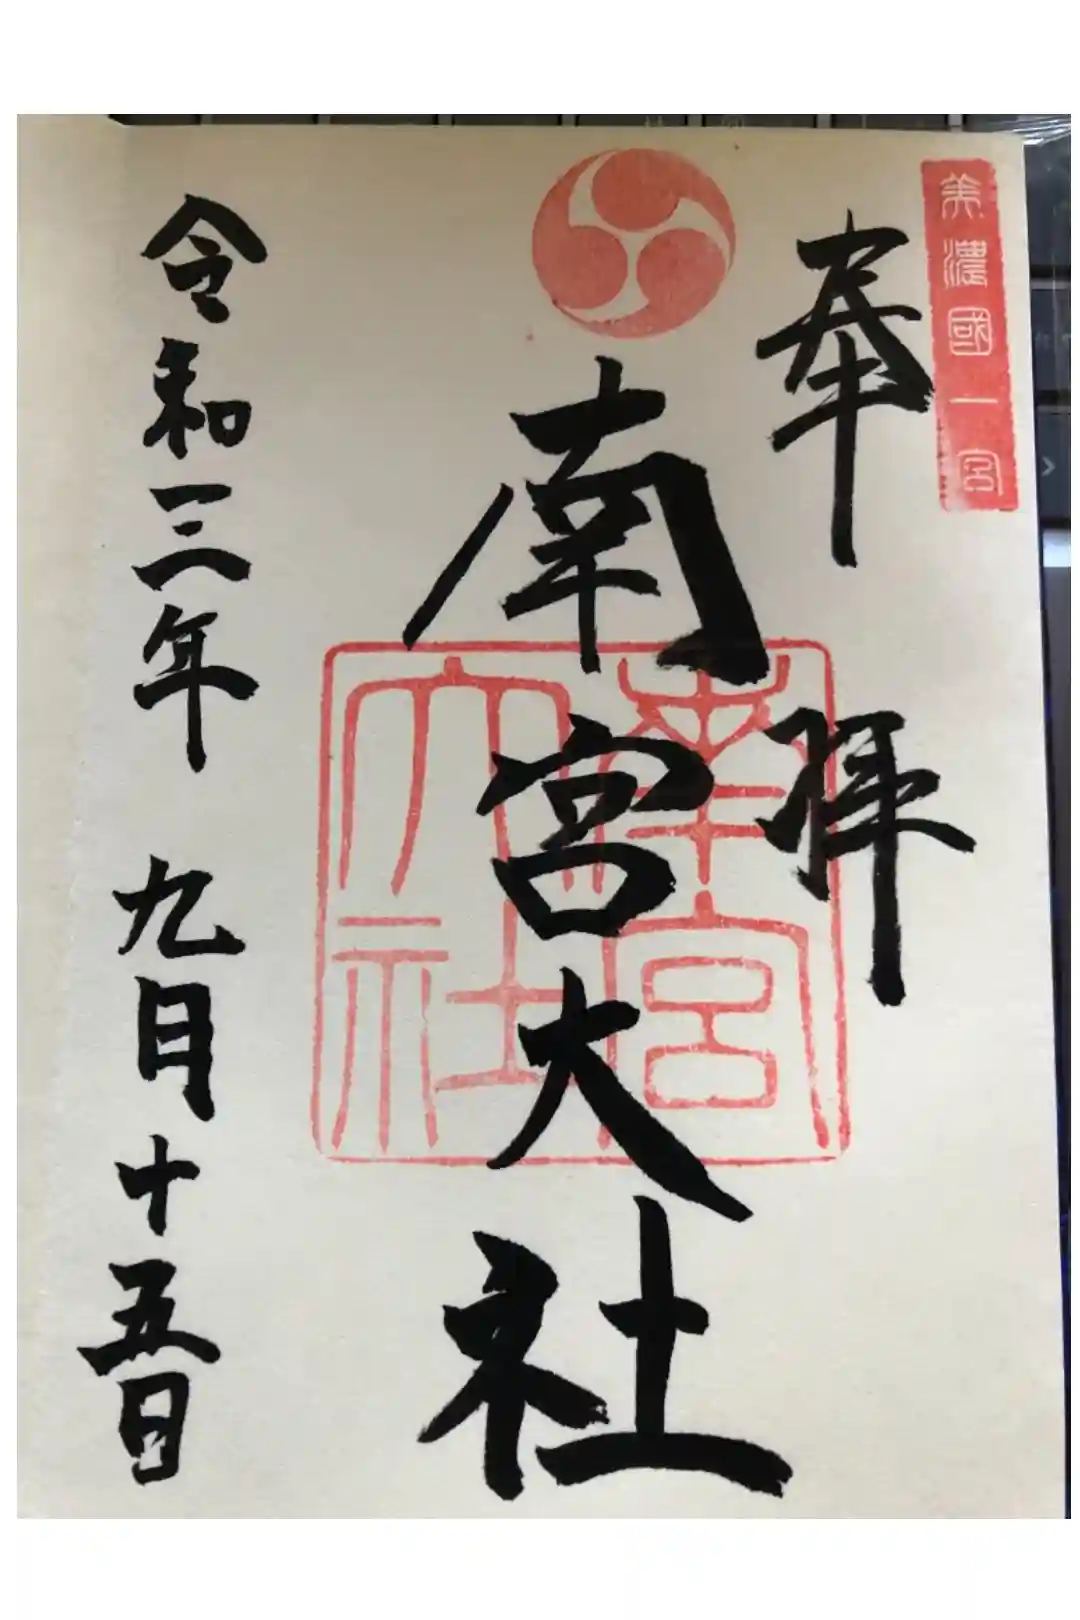 美濃國一宮
奉拝
南宮大社
南宮
大社
令和三年 九月十五日